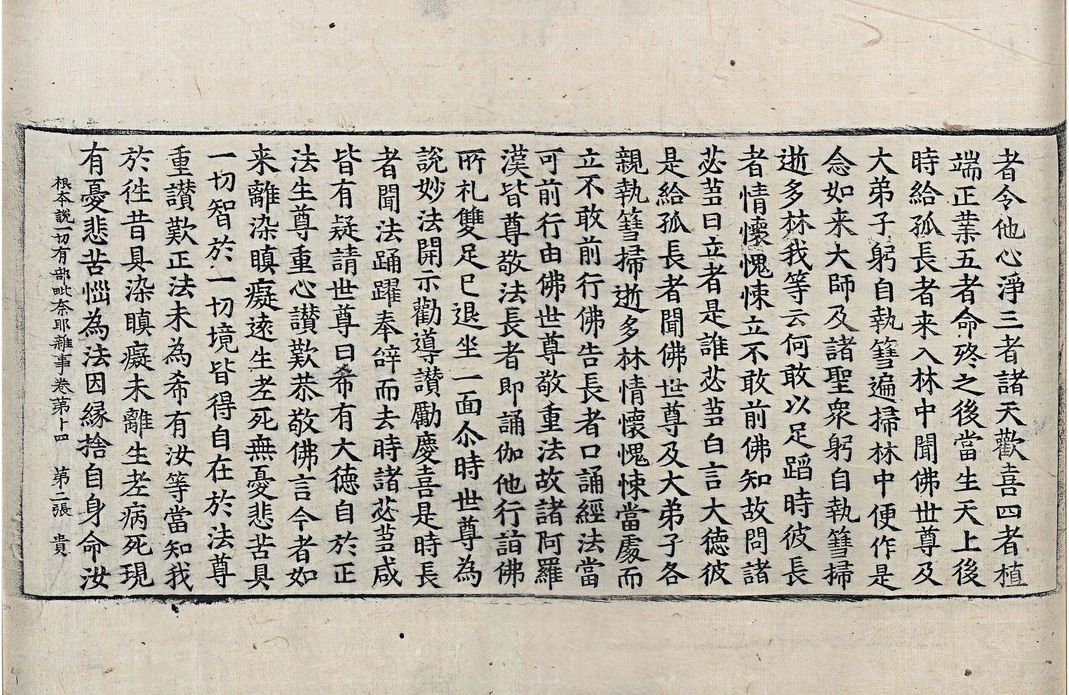 者令他心淨三者諸天歡喜四者植
端正業五者命終之後當生天上後
時給孤長者来入林中聞佛世尊及
大弟子躬自執篲遍掃林中便作是
念如来大師及諸聖衆躬自執篲掃
逝多林我等云何敢以足蹈時彼長
者情懷愧悚立不敢前佛知故問諸
苾芻曰立者是誰苾芻白言大德彼
是給孤長者聞佛世尊及大弟子各
親執篲掃逝多林情懷愧悚當處而
立不敢前行佛告長者口誦經法當
可前行由佛世尊敬重法故諸阿羅
漢皆尊敬法長者即誦伽他行詣佛
所礼雙足已退坐一面尒時世尊為
說妙法開示勸導讚勵慶喜是時長
者聞法踊躍奉辝而去時諸苾芻咸
皆有疑請世尊曰希有大德自於正
法生尊重心讃歎恭敬佛言今者如
来離染瞋癡遠生老死無憂悲苦具
一切智於一切境皆得自在於法尊
重讃歎正法未為希有汝等當知我
於徃昔具染瞋癡未離生老病死現
有憂悲苦惱為法因緣捨自身命汝
根本說一切有部毗奈耶雜事卷第十四 第二張 貴